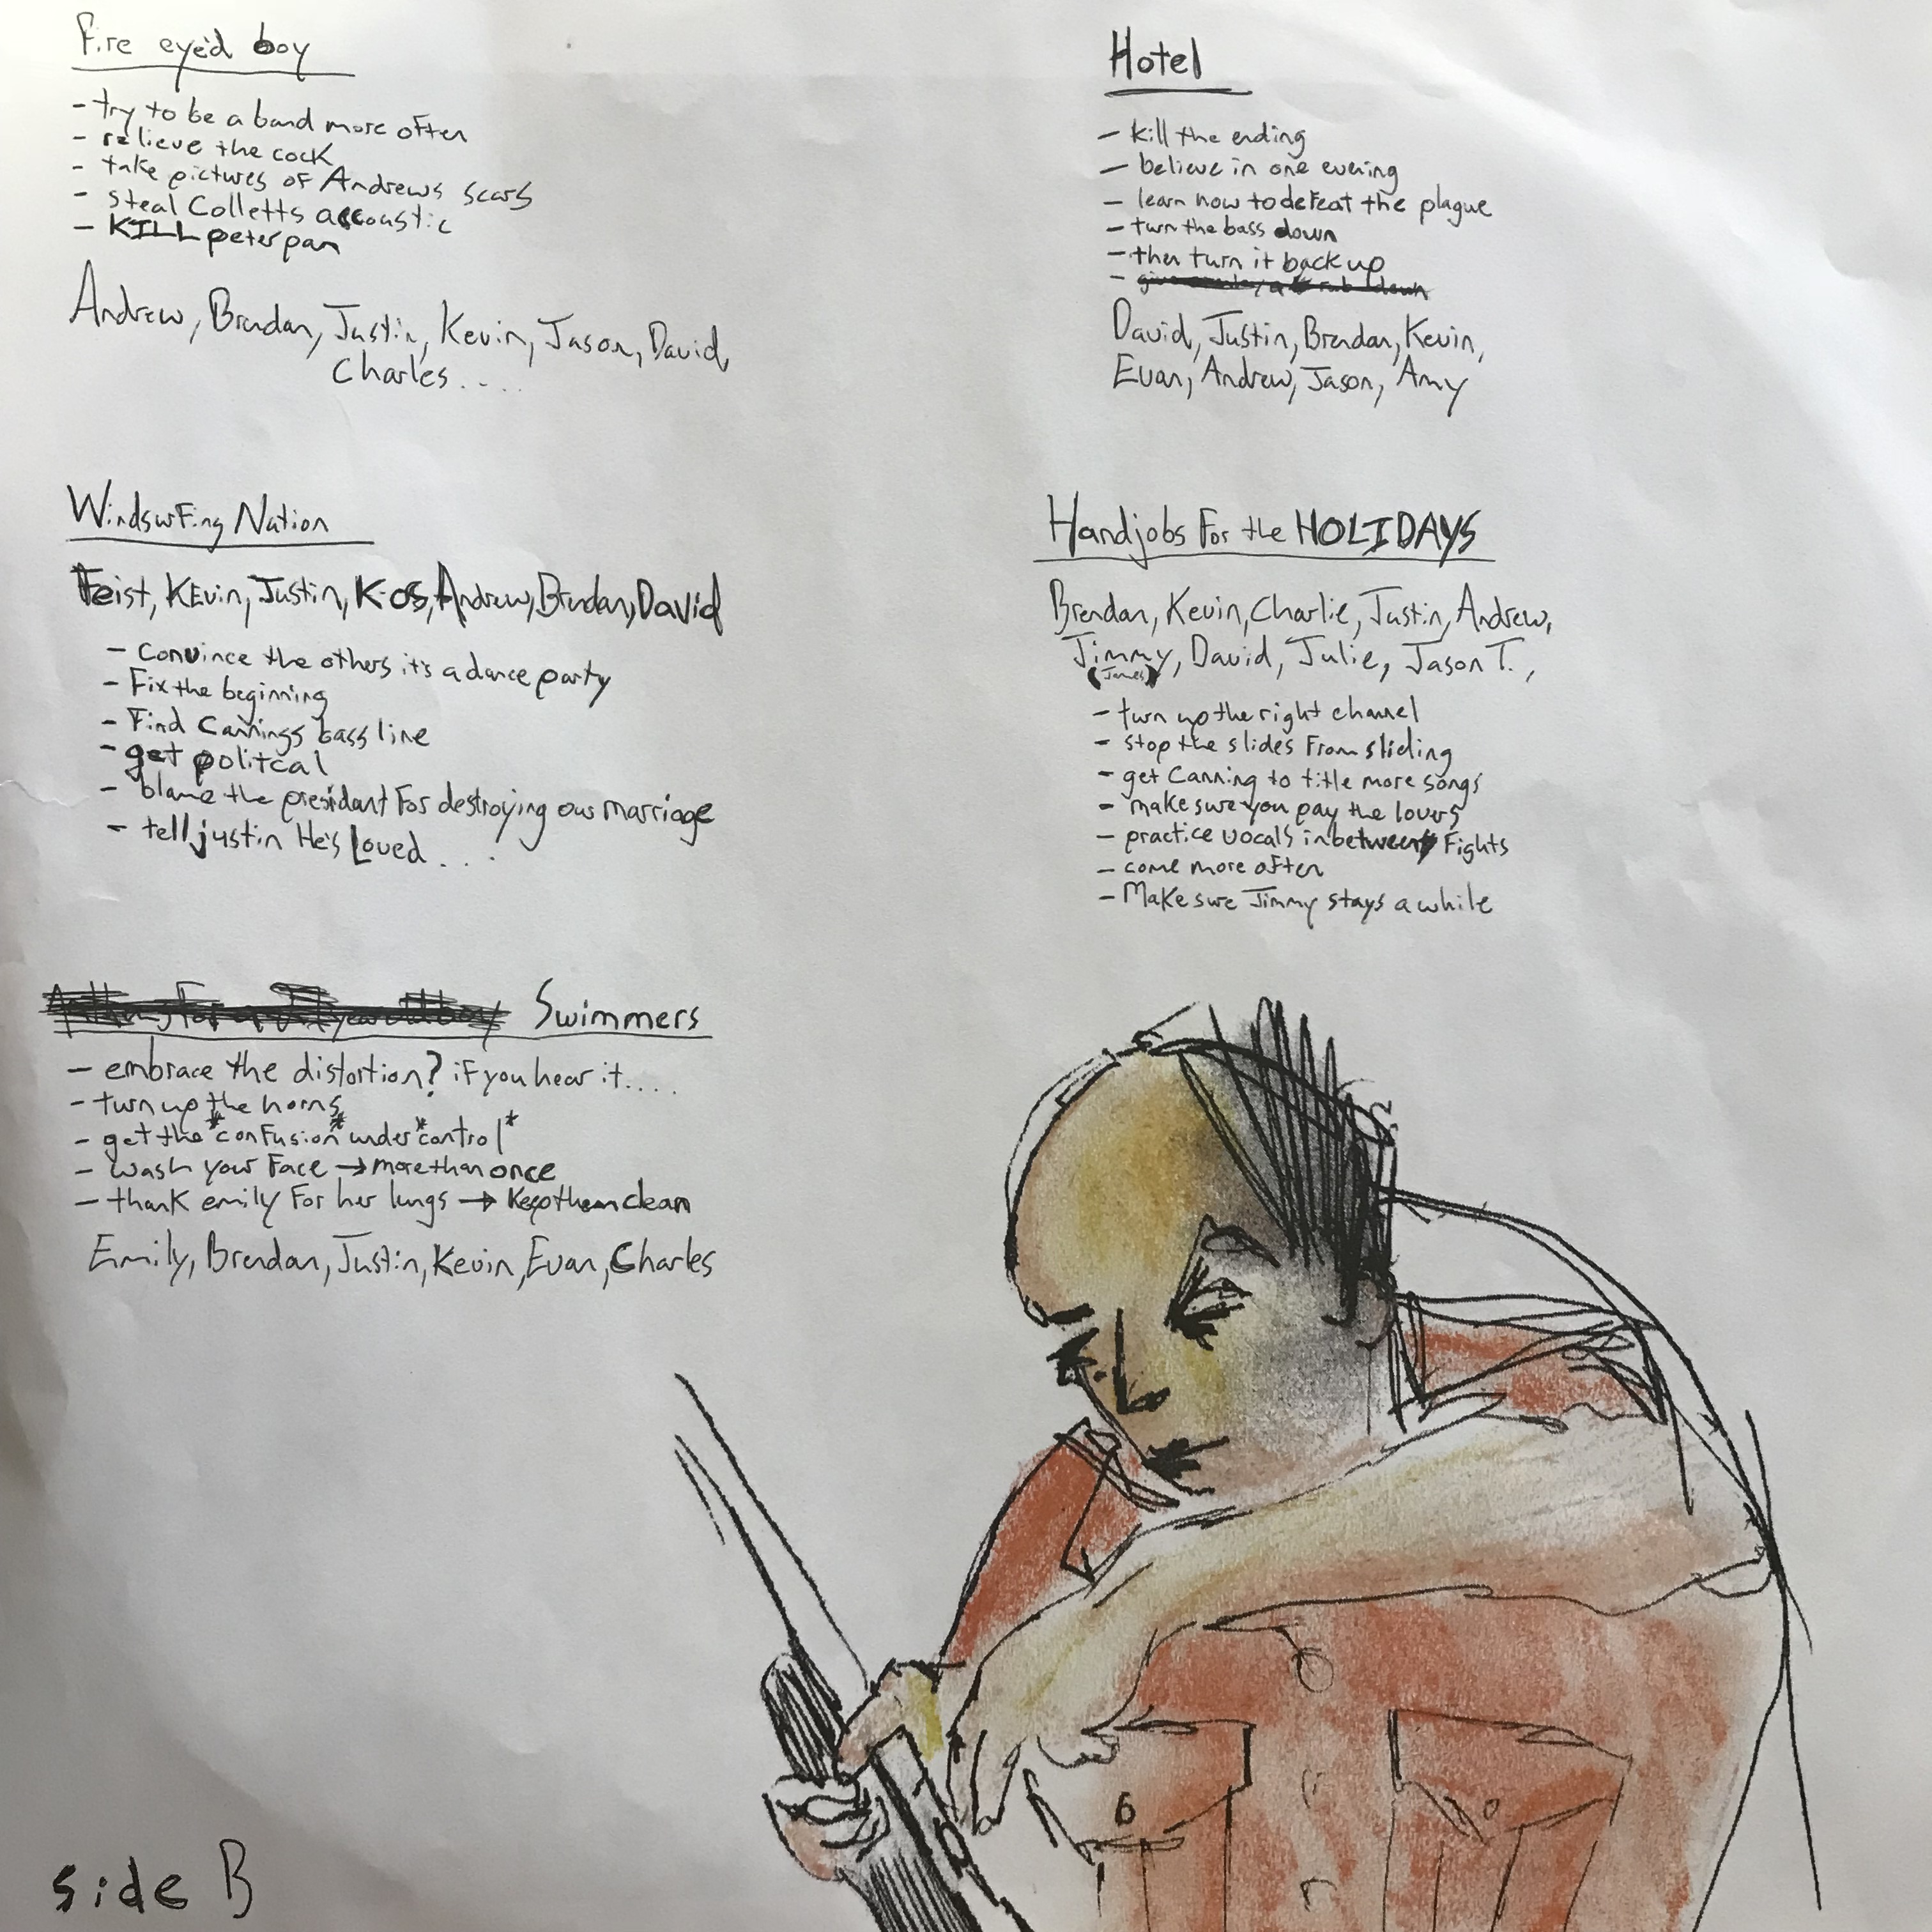 Fire eye'd boy
- try to be a band more often
- relieve the cock
- take pictures of Andrews scars
- steal Colletts accoustic
- KILL peter pan
Andrew, Brendan, Justin, Kevin, Jason, David,
Charles....
Windsurfing Nation
Feist, KEvin, Justin, K-os, Andrew, Brendan, David
- Convince the others it's a dance party
- Fix the beginning
- Find Cannings bass line
- get politcal
- blame the presidant For destroying our marriage
- tell justin He's Loved....
Swimmers
- embrace the distortion? if you hear it....
- turn up the horns
- get the *confusion* under *control*
- wash your Face → more than once
- thank emily For her lungs → Keep them clean
Emily, Brendan, Justin, Kevin, Evan, Charles
side B
Hotel
- kill the ending
- believe in one evening
- learn how to defeat the plague
- turn the bass down
- then turn it back up
- rub down
David, Justin, Brendan, Kevin,
Evan, Andrew, Jason, Amy
Handjobs For the HOLIDAYS
Brendan, Kevin, Charlie, Justin, Andrew,
Jimmy, David, Julie, Jason T.,
(James)
- turn up the right channel
- stop the slides From sliding
- get Canning to title more songs
- make sure you pay the lovers
- practice vocals inbetween Fights
- come more often
- Make sure Jimmy stays a while
6